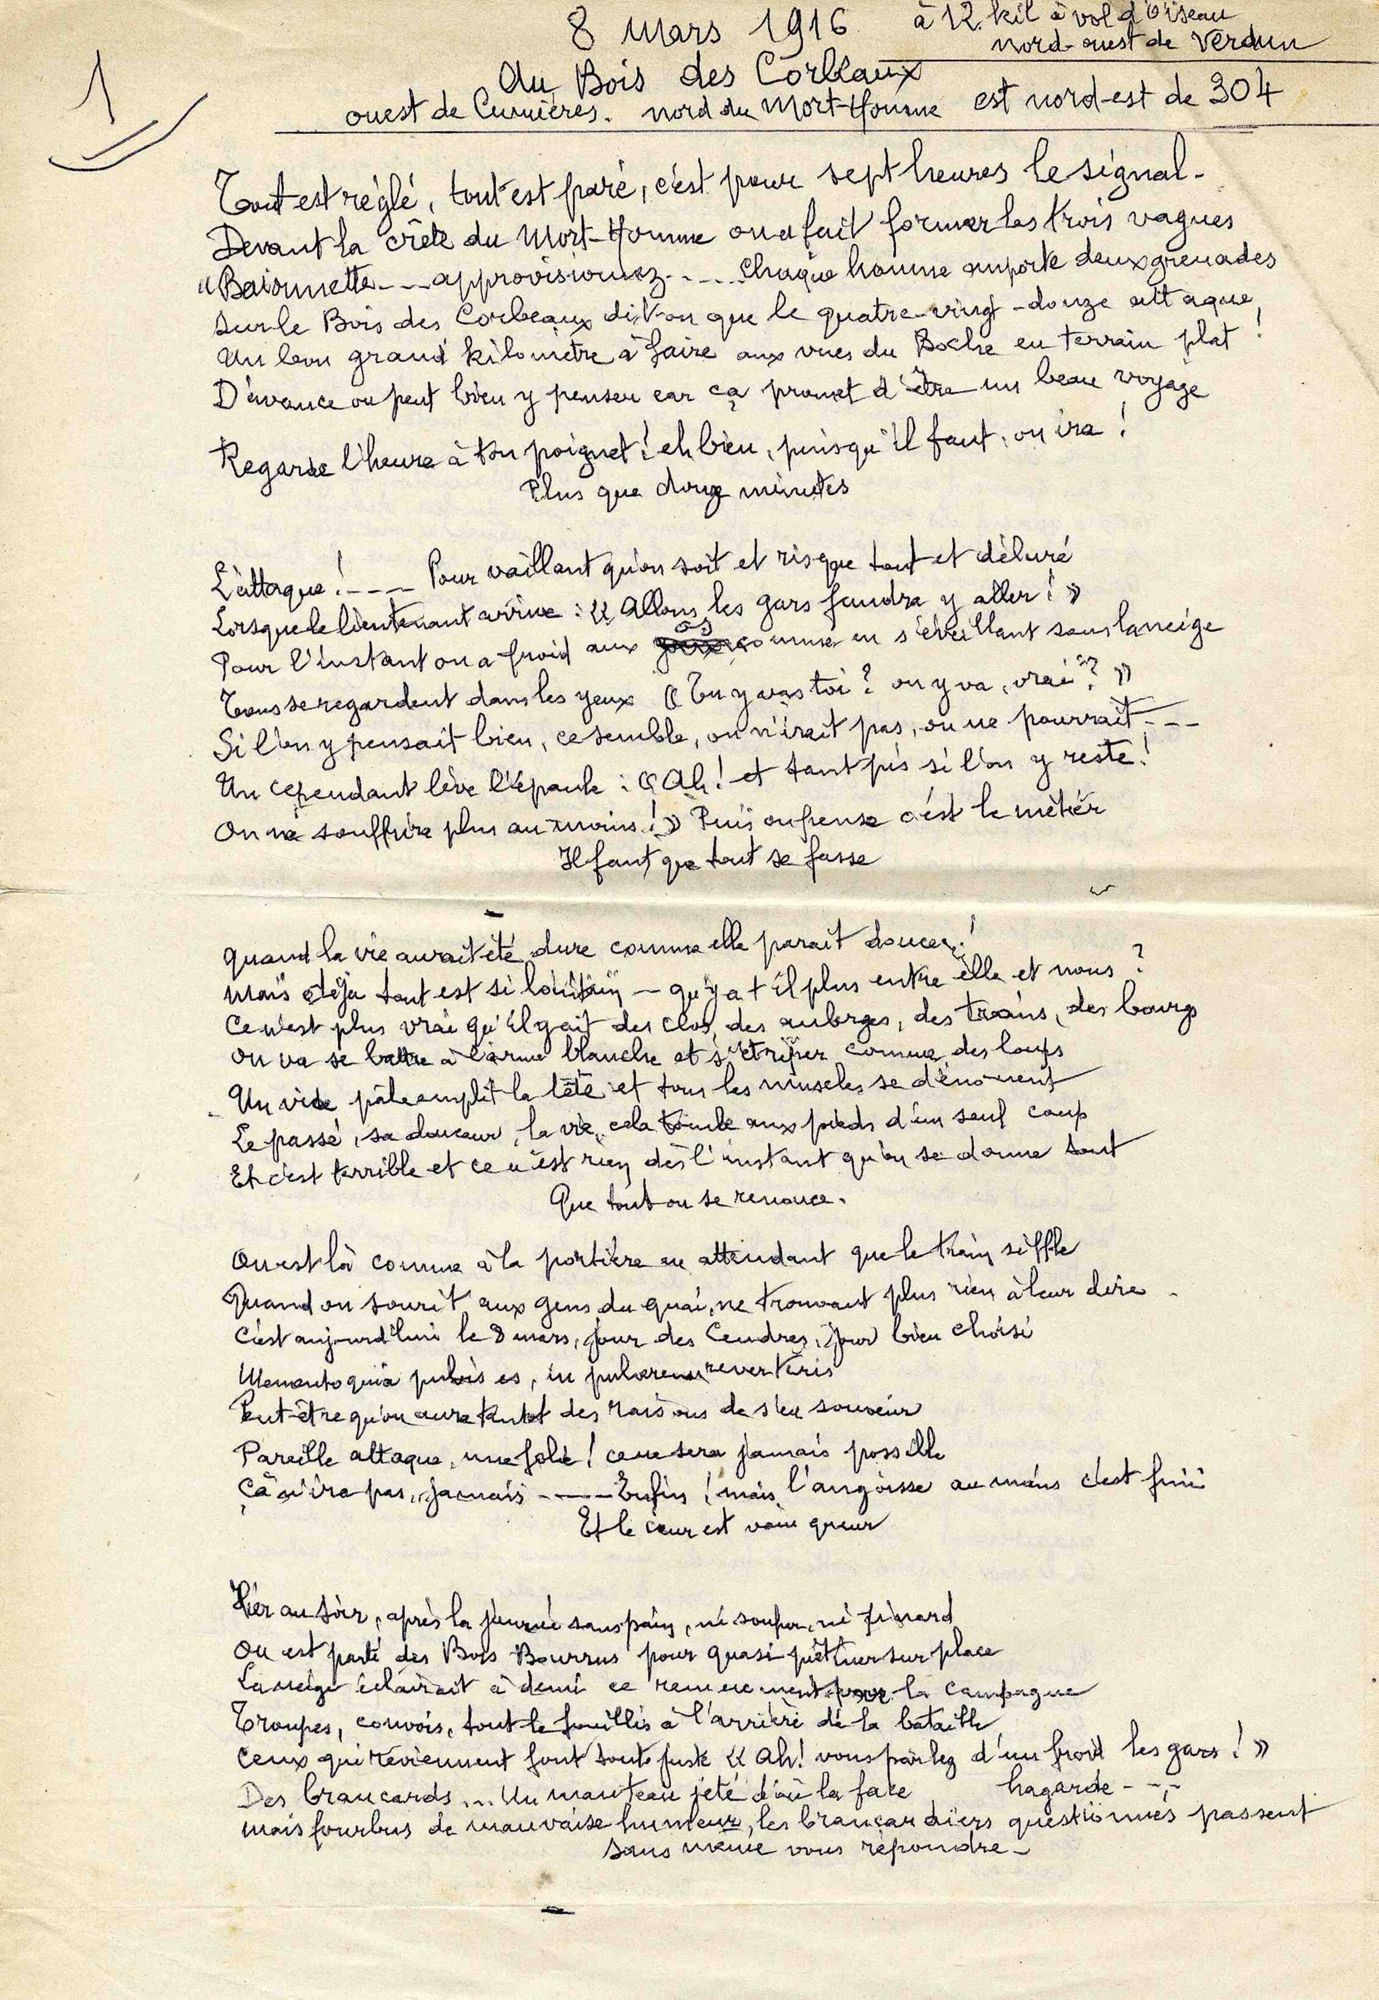 8 mars 1916 à 12 kil à vol d'oiseau
nord-ouest de Verdun
Au Bois des Corbeaux
ouest de Cumières. nord du Mort-Homme est nord-est de 304
1
Tout est réglé, tout est paré, c'est pour sept heures le signal -
Devant la crête du Mort-Homme on a fait former les trois vagues
"Baïonnette --- approvisionnez ---- Chaque homme emporte deux grenades
Sur le Bois des Corbeaux dit-on que le quatre-vingt-douze attaque
Un bon grand kilomètre à faire aux vues du Boche en terrain plat !
D'avance on peut bien y penser car ça promet d'être un beau voyage
Regarde l'heure à ton poignet ! eh bien, puisqu'il faut, on ira !
Plus que douze minutes
L'attaque ! ---- Pour vaillant qu'on soit et risque tout et déluré
Lorsque le lieutenant arrive : « Allons les gars faudra y aller ! »
Pour l'instant on a froid aux os comme en s'éveillant sous la neige
Tous se regardent dans les yeux « Tu y vas toi ? on y va, vrai ? »
Si l'on y pensait bien, ce semble, on n'irait pas, on ne pourrait ---
Un cependant lève l'épaule : « Ah ! et tant pis si l'on y reste !
On ne souffrira plus au moins ! » Puis on pense c'est le métier
Il faut que tout se fasse
Quand la vie aurait été dure comme elle parait douce !
Mais déjà tout est si lointain - qu'y a t il plus entre elle et nous ?
Ce n'est plus vrai qu'il y ait des clos, des auberges, des trains, des bourgs
On va se battre à l'arme blanche et s'étriper comme des loups
Un vide pâle emplit la tête et tous les muscles se dénouent
Le passé, sa douceur, la vie, cela tombe aux pieds d'un seul coup
Et c'est terrible et ce n'est rien dès l'instant qu'on se donne tout
Que tout on se renonce.
On est là comme à la portière en attendant que le train siffle
Quand on sourit aux gens du quai, ne trouvant plus rien à leur dire -
C'est aujourd'hui le 8 mars, jour des Cendres, jour bien choisi
Memento quia pulvis es, in pulverem reverteris
Peut-être qu'on aura tantôt des raisons de s'en souvenir
Pareille attaque, une folie ! ce ne sera jamais possible
Çà n'ira pas, jamais ---- Enfin ! mais l'angoisse au moins c'est fini
Et le cœur est vainqueur
Hier au soir, après la journée sans pain, ni souper, ni pinard
On est parti des Bois Bourrus pour quasi piétiner sur place
La neige éclairait à demi ce remuement la campagne
Troupes, convois, tout le fouillis à l'arrière de la bataille
Ceux qui reviennent font tout juste « Ah ! vous parlez d'un froid les gars ! »
Des brancards ... Un manteau jeté d'où la face hagarde ---
Mais fourbus de mauvaise humeur, les brancardiers questionnés passent
Sans même vous répondre -